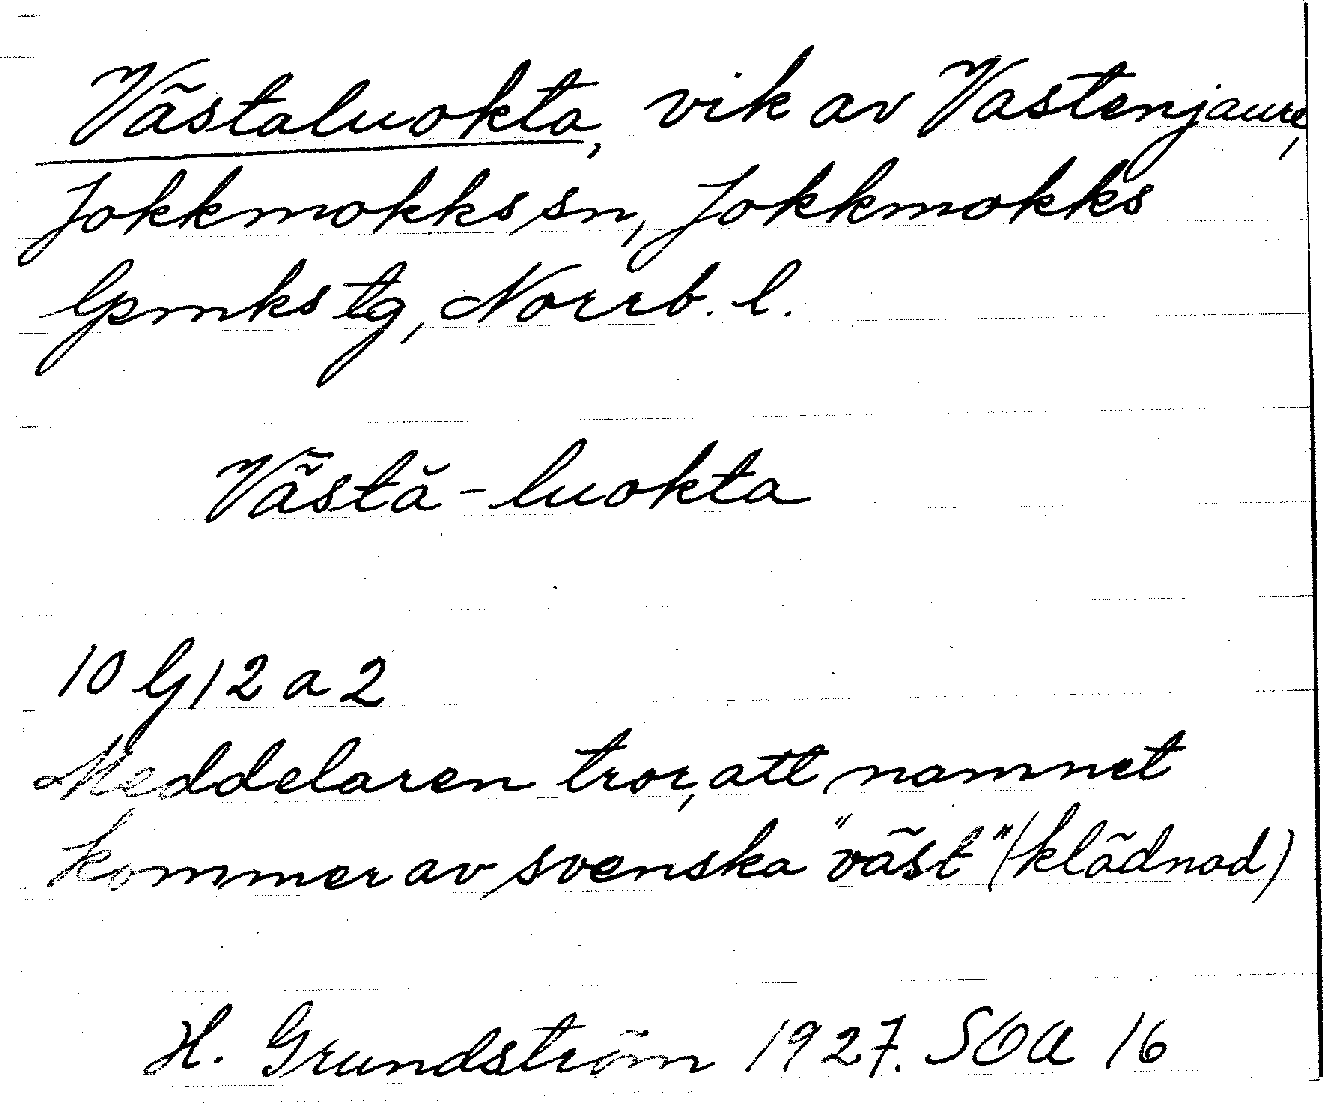 Västaluokta, vik av Vastenjaure,
Jokkmokks sn, Jokkmokks
lpmks tg, Norrb. l.
Västă-luokta
10 G 12 a 2
Meddelaren tror, att namnet
kommer av svenska "väst" (klädnad)
H. Grundström 1927. SOA 16